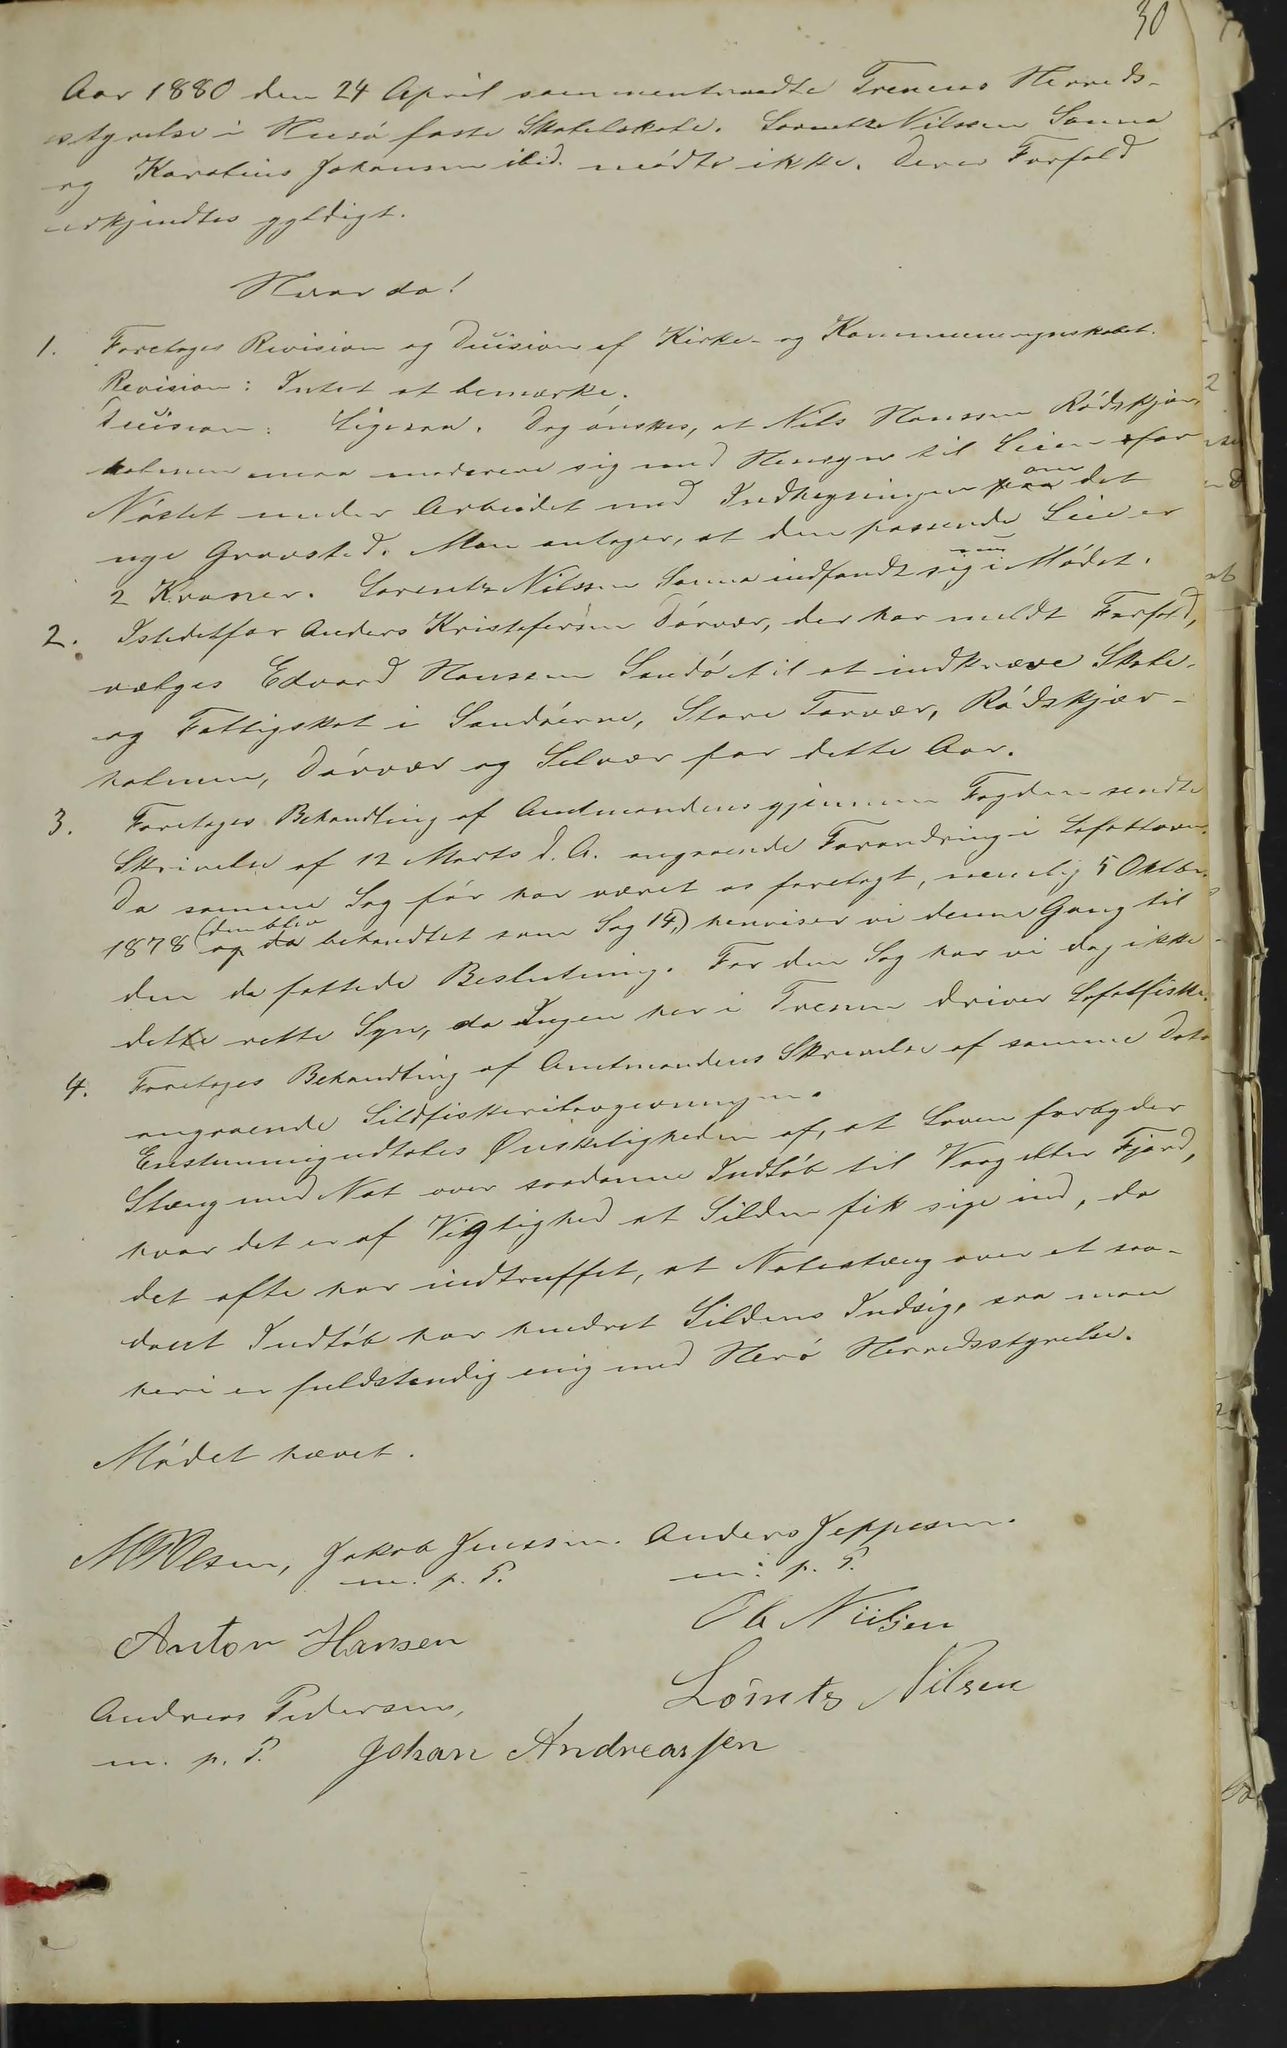 30
Aar 1880 den 24 April sammentraadte Trenens Herreds-
styrelse i Husö faste Skolelokale. Lorentz Nilssen Sanna
og Karolius Johansen ibid. mödte ikke. Deres Forfald
erkjendtes gyldigt.
Hvorda!
1. Foretoges Revision og Decision af Kirke- og Kommuneregnskabet.
Revision: Intet at bemærke.
Decision: Ligesaa. Dog önskes, at Nils Hanssen Rödskjær-
holmen maa moderere sig med Hensyn til Leien for
Nöstet under Arbeidet med Indhegningen om det
nye Gravsted. Man antager, at den passende Leie er
2 Kroner. Lorentz Nilssen Sanna indfandt sig nu i Mödet.
2. Istedetfor Anders Kristofersen Dörvær, der har meldt Forfald,
vælges Edvard Hanssen Sandö til at indkræve Skole-
og Fattigskat i Sandöerne, Store Torvær, Rödskjær-
holmen, Dörvær og Selvær for dette Aar.
3. Foretoges Behandling af Amtmandens gjennem Fogden sendte
Skrivelse af 12 Marts d. A. angaaende Forandring i Lofotloven.
Da samme Sag för har været os forelagt, nemlig 5 Oktbr.
1878 (den blev da behandlet som Sag 14,) henviser vi denne Gang til
den da fattede Beslutning. For den Sag har vi dog ikke
det rette Syn, da Ingen her i Trenen driver Lofotfiske.
4. Foretoges Behandling af Amtmandens Skrivelse af samme Dato
angaaende Sildfiskerilovgivningen.
Enstemmig udtales Önskeligheden af, at Loven forbyder
Stæng med Not over saadanne Indlöb til Vaag eller Fjord,
hvor det er af Vigtighed at Silden fik sige ind, da
det ofte har indtruffet, at Notestæng over et saa-
dant Indlöb har hindret Sildens Indsig, saa man
heri er fuldstendig enig med Herö Herredsstyrelse.
Mödet hævet.
Olsen, Jakob Jenssen. Anders Jeppesen.
m. p. P. m. p. P.
Anton Hansen Ole Nilsen
Andreas Pedersen, Lörntz Nilsen
m. p. P. Johan Andreassen